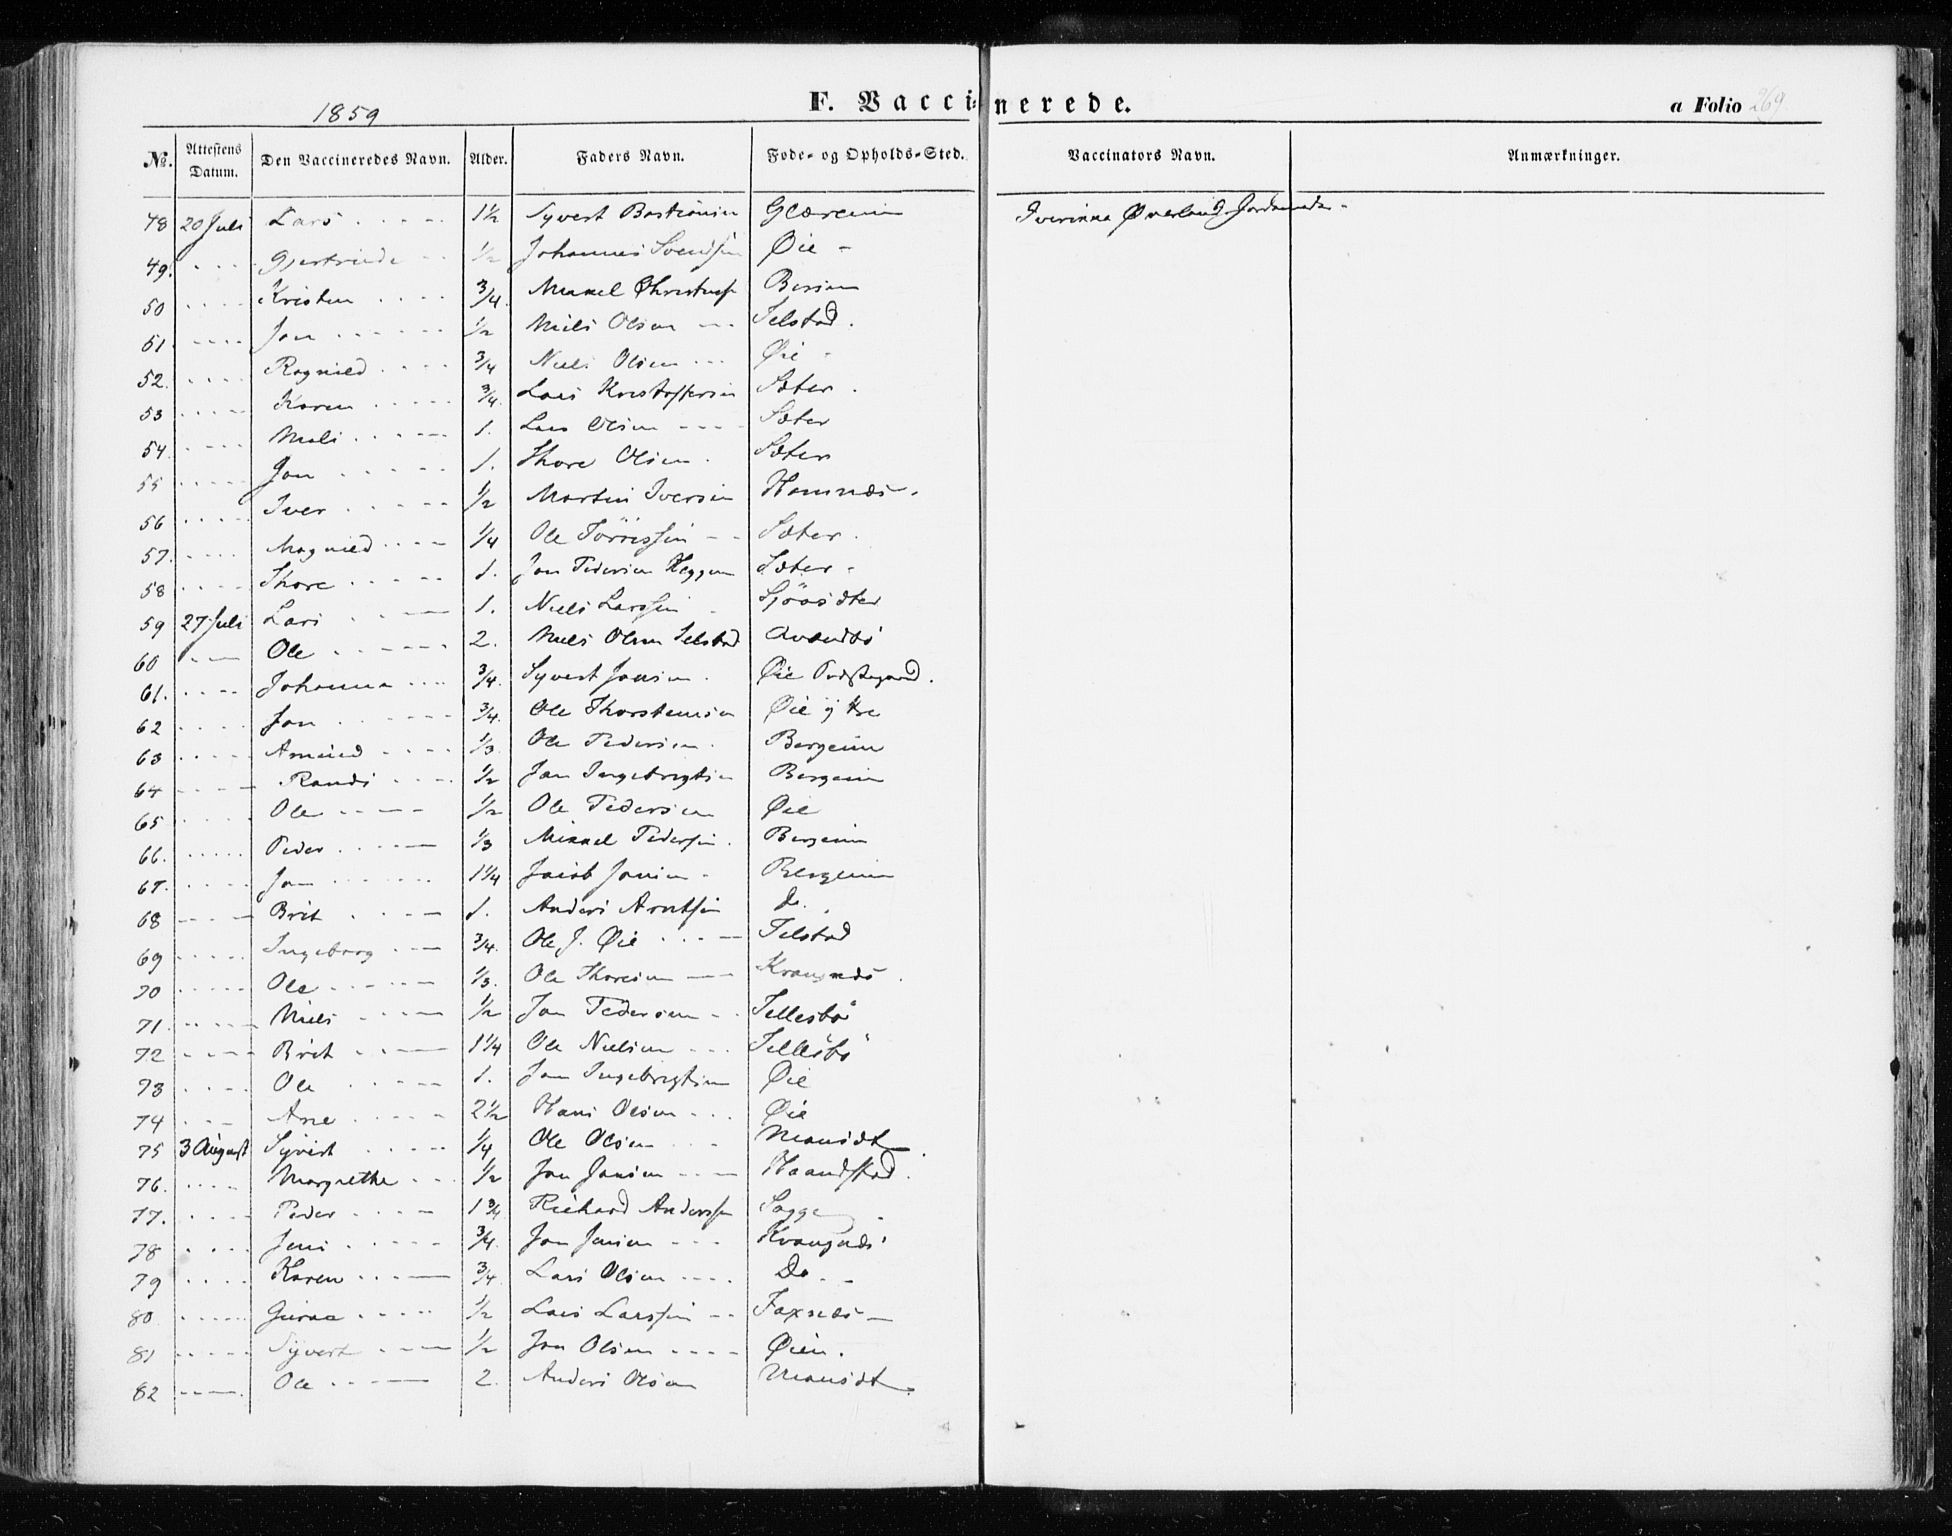 1859
F. Vaccinerede.
a Folio 269
No. Attestens Datum. Den Vaccineredes Navn. Alder. Faders Navn. Føde- og Opholds-Sted. Vaccinators Navn. Anmærkninger.
48 20 Juli Lars 1½ Syvert Bastiansen Glærem Øverland
49. Gjertrude ½ Johannes Svendsen Øie
50 Kristen ¾. Mikkel
51. Jon ½ Niels Olsen Telstad.
52. Ragnild ¾ Niels Olsen Øie
53 Karen ¾. Lars Kristoffersen Sæter.
54. Mali 1. Lars Olsen Sæter
55 Jon 1. Thore Olsen. Sæter
56 Iver ½ Martin Iversen Hamnæs.
57. Magnild ¼ Ole Tørrissen Sæter.
58 Thore 1. Jon Pedersen Heggem Sæter
59 27 Juli Lars 1. Niels Larssen
60 Ole 2. Niels Olsen Telstad
61. Johanna ¾. Syvert Jonsen. Øie
62 Jon ¾. Ole Thorstensen Øie ytre
63 ⅓. Ole Pedersen. Bergeim
64 Randi ½ Jon Ingebrigtsen Bergeim
65 Ole ½ Ole Pedersen Øie
66. Peder ⅓ Mikkel Pedersen. Bergeim
67. Jon 1¼ Jacob Jonsen Bergeim
68 Brit 1. Anders Arntsen do.
69 Ingeborg ¾. Ole J. Øie Telstad
70 Ole ⅓. Ole Thoresen Kvangnæs
71. Niels ½ Jon Pedersen Tellesbø
72 Brit 1¼ Ole Nielsen Tellesbø
73 Ole 1. Jon Ingebrigtsen Øie
74 Arne 2½ Hans Olsen Øie
75 3 August Syvert ¼ Ole Olsen
76. Margrethe ½ Jon Jonsen Haandstad.
77. Peder 1¾ Richard Anderssen Sagge
78 Jens ¾. Jon Jensen Kvangnæs
79 Karen ¾. Lars Olsen Do.
80 Guraa ½ Lars Larssen Faxnæs
81 Syvert ½ Jon Olsen Øien.
82 Ole 2. Anders Olsen